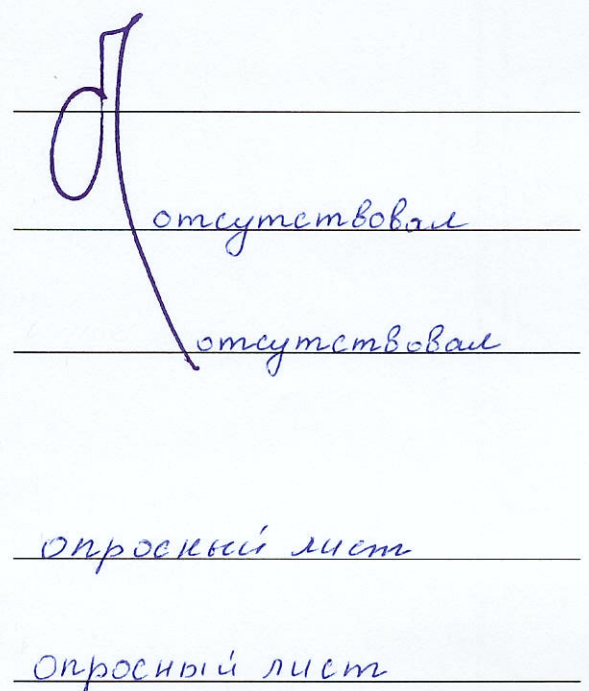 отсутствовал
отсутствовал
опросный лист
опросный лист